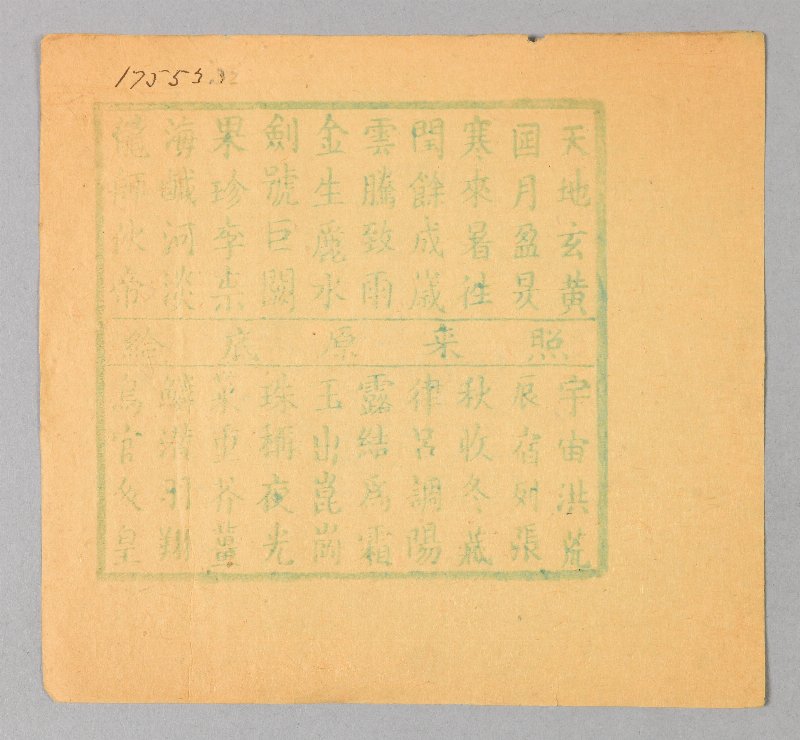 17553.12
照来原底給
天地玄黃
宇宙洪荒
囸月盈昃
辰宿列張
寒來暑往
秋收冬藏
閏餘成歲
律呂調陽
雲騰致雨
露結爲霜
金生麗水
玉出崑崗
劍號巨闕
珠稱夜光
果珍李柰
菜重芥薑
海鹹河淡
鱗潛羽翔
龍師火帝
鳥官人皇